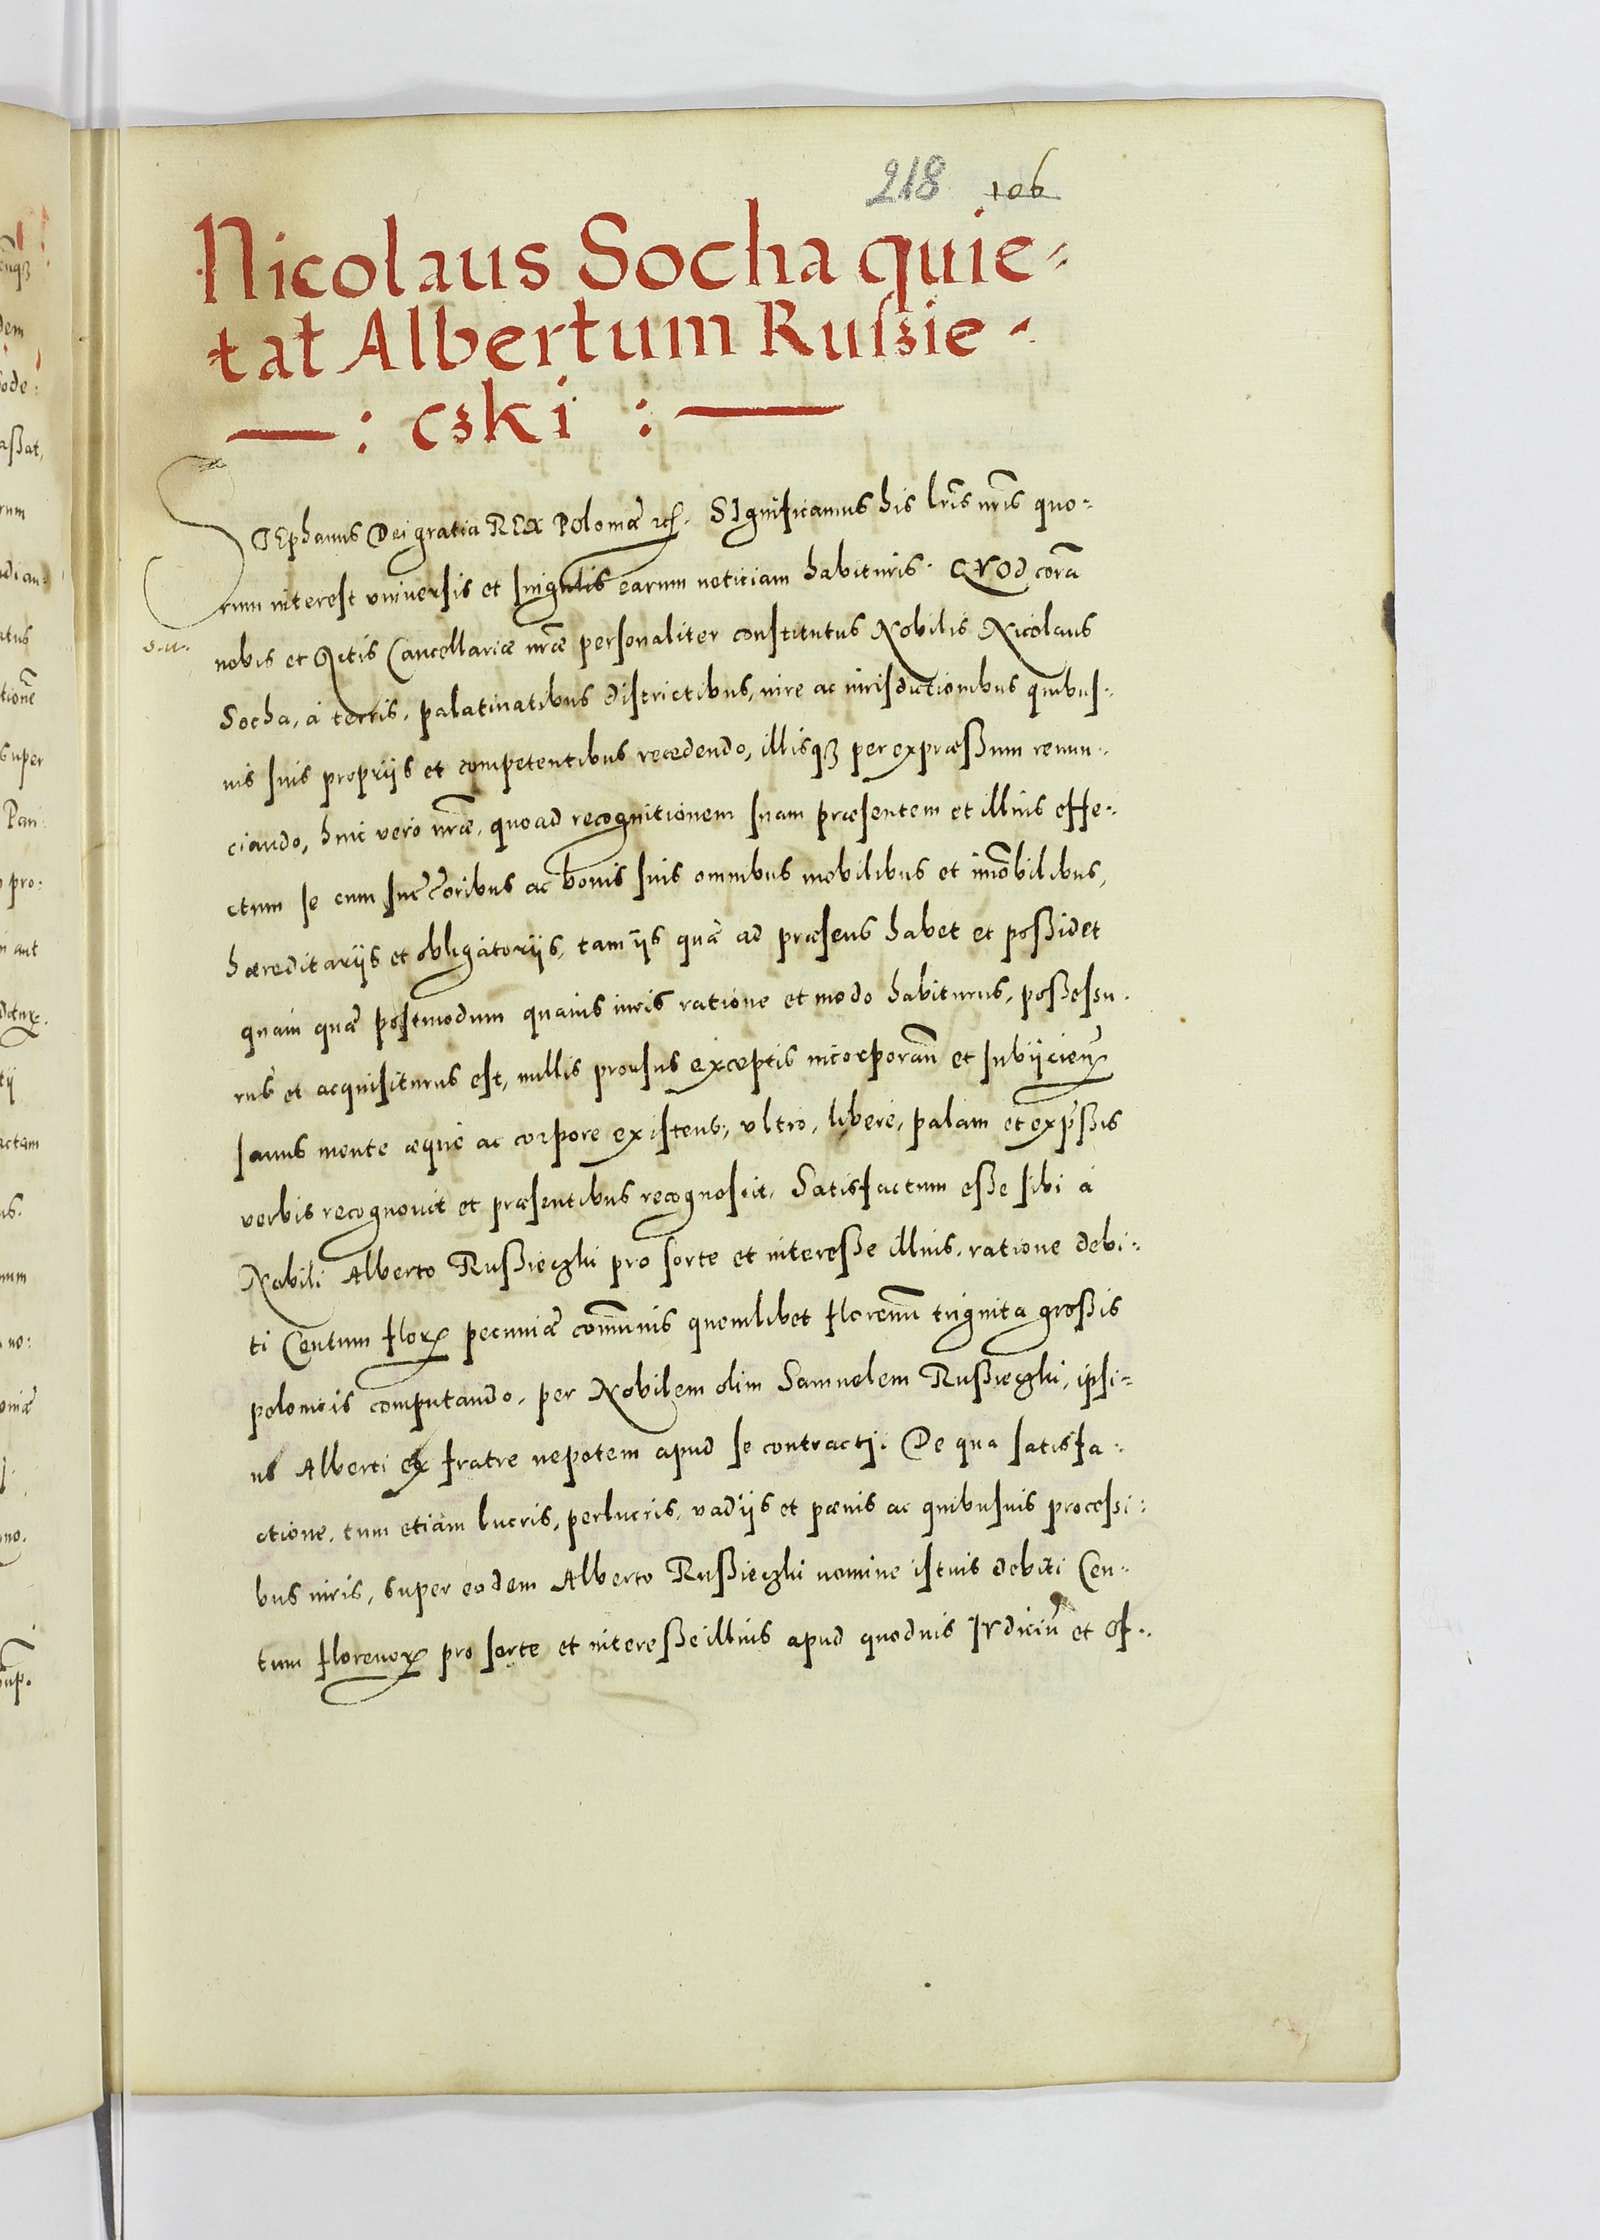 218 106
Nicolaus Socha quie-
tat Albertum Rusſzie-
: cʒki :
STEphanus Dei gratia REX Poloniæ etc. SIgnificamus his lris nris quo-
rum interest vniuersis et singulis earum notitiam habituris. QVOd corã
nobis et Actis Cancellariæ nræ personaliter constitutus Nobilis Nicolaus
s. u.
Socha, à terris, palatinatibus districtibus, iure ac iurisdictionibus quibus-
uis suis proprijs et competentibus recedendo, illisqȝ per expræßum renun-
ciando, huic vero nræ, quoad recognitionem suam præsentem et illius effe-
ctum se cum succ̃oribus ac bonis suis omnibus mobilibus et im̃obilibus,
hæreditarijs et obligatorijs, tam ijs quæ ad præsens habet et poßidet
quam quæ postmodum quauis iuris ratione et modo habiturus, poßessu-
rus et acquisiturus est, nullis prorsus exceptis incorporan̄ et subijcien̄
sanus mente æque ac corpore existens, vltro, libere, palam et exp̄ßis
verbis recognouit et præsentibus recognoscit, Satisfactum eße sibi à
Nobili Alberto Rußieczki pro sorte et intereße illius, ratione debi-
ti Centum florꝝ pecuniæ com̃unis quemlibet florenũ triginta großis
polonicis computando, per Nobilem olim Samuelem Rußieczki, ipsi-
us Alberti ex fratre nepotem apud se contracti. De qua satisfa-
ctione, tum etiam lucris, perlucris, vadijs et pænis ac quibusuis proceßi-
bus iuris, super eodem Alberto Rußieczki nomine istius debiti Cen-
tum florenoꝝ pro sorte et intereße illius apud quoduis IVdiciũ et Of-